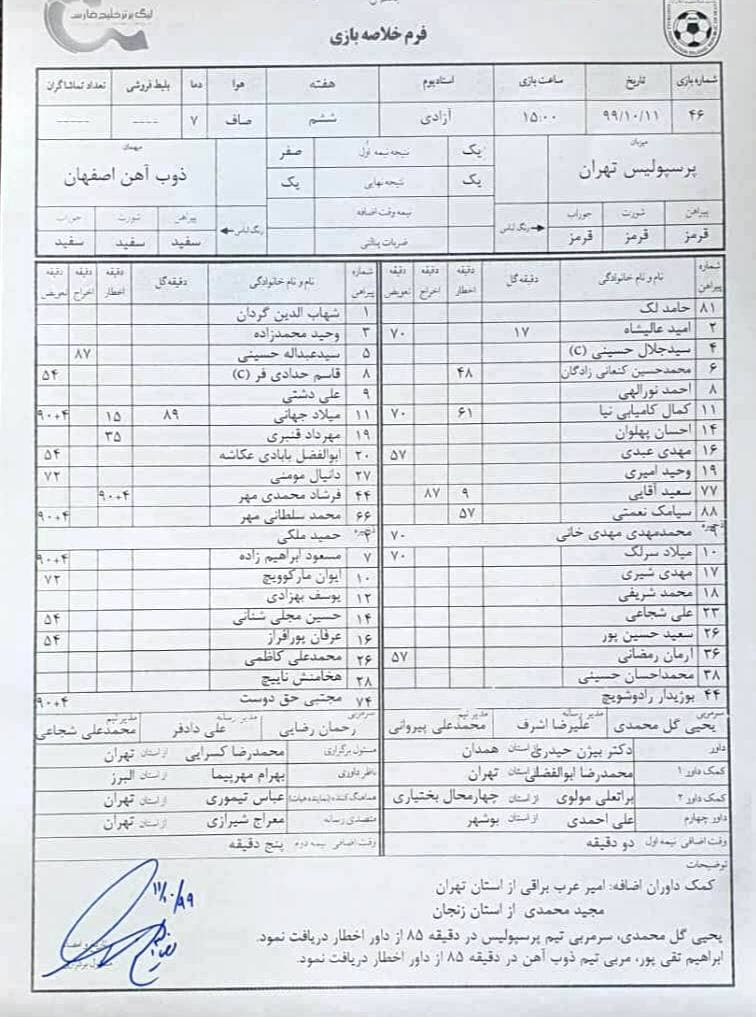 لیگ برتر خلیج فارس
فرم خلاصه بازی
شماره بازی تاریخ ساعت بازی استادیوم هفته هوا دما بلیط فروشی تعداد تماشاگران
۴۶ ۹۹/۱۰/۱۱ ۱۵:۰۰ آزادی ششم صاف ۷ ---- -----
میزبان یک نتیجه نیمه اول صفر میهمان
پرسپولیس تهران یک نتیجه نهایی یک ذوب آهن اصفهان
نیمه وقت اضافه
پیراهن شورت جوراب رنگ لباس ضربات پنالتی رنگ لباس پیراهن شورت جوراب
قرمز قرمز قرمز سفید سفید سفید
شماره پیراهن نام و نام خانوادگی دقیقه گل دقیقه اخطار دقیقه اخراج دقیقه تعویض
۸۱ حامد لک
۲ امید عالیشاه ۱۷ ۷۰
۴ سیدجلال حسینی (C)
۶ محمدحسین کنعانی زادگان ۴۸
۸ احمد نورالهی
۱۱ کمال کامیابی نیا ۶۱ ۷۰
۱۴ احسان پهلوان
۱۶ مهدی عبدی ۵۷
۱۹ وحید امیری
۷۷ سعید آقایی ۹ ۸۷
۸۸ سیامک نعمتی ۵۷
ذخیره ۹ محمدمهدی مهدی خانی ۷۰
۱۰ میلاد سرلک ۷۰
۱۷ مهدی شیری
۱۸ محمد شریفی
۲۳ علی شجاعی
۲۶ سعید حسین پور
۳۶ آرمان رمضانی ۵۷
۳۸ محمداحسان حسینی
۴۴ بوژیدار رادوشویچ
سرمربی یحیی گل محمدی مدیر رسانه علیرضا اشرف مدیر تیم محمدعلی پیروانی
شماره پیراهن نام و نام خانوادگی دقیقه گل دقیقه اخطار دقیقه اخراج دقیقه تعویض
۱ شهاب الدین گردان
۳ وحید محمدزاده
۵ سیدعبداله حسینی ۸۷
۸ قاسم حدادی فر (C) ۵۴
۹ علی دشتی
۱۱ میلاد جهانی ۸۹ ۱۵ ۹۰+۴
۱۹ مهرداد قنبری ۳۵
۲۰ ابوالفضل بابادی عکاشه ۵۴
۲۷ دانیال مومنی ۷۲
۴۴ فرشاد محمدی مهر ۹۰+۴
۶۶ محمد سلطانی مهر ۹۰+۴
ذخیره ۲ حمید ملکی
۷ مسعود ابراهیم زاده ۹۰+۴
۱۰ ایوان مارکوویچ ۷۲
۱۲ یوسف بهزادی
۱۴ حسین مجلی شنانی ۵۴
۱۶ عرفان پورافراز ۵۴
۲۶ محمدعلی کاظمی
۲۸ هخامنش ناییچ
۷۴ مجتبی حق دوست ۹۰+۴
سرمربی رحمان رضایی مدیر رسانه علی دادفر مدیر تیم محمدعلی شجاعی
داور دکتر بیژن حیدری از استان همدان مسئول برگزاری محمدرضا کسرایی از استان تهران
کمک داور ۱ محمدرضا ابوالفضلی از استان تهران ناظر داوری بهرام مهرپیما از استان البرز
کمک داور ۲ براتعلی مولوی از استان چهارمحال بختیاری هماهنگ کننده (نماینده هیات) عباس تیموری از استان تهران
داور چهارم علی احمدی از استان بوشهر متصدی رسانه معراج شیرازی از استان تهران
وقت اضافی نیمه اول دو دقیقه وقت اضافی نیمه دوم پنج دقیقه
توضیحات
کمک داوران اضافه: امیر عرب براقی از استان تهران
مجید محمدی از استان زنجان
یحیی گل محمدی، سرمربی تیم پرسپولیس در دقیقه ۸۵ از داور اخطار دریافت نمود.
ابراهیم تقی پور، مربی تیم ذوب آهن در دقیقه ۸۵ از داور اخطار دریافت نمود.
۹۹/۱۰/۱۱